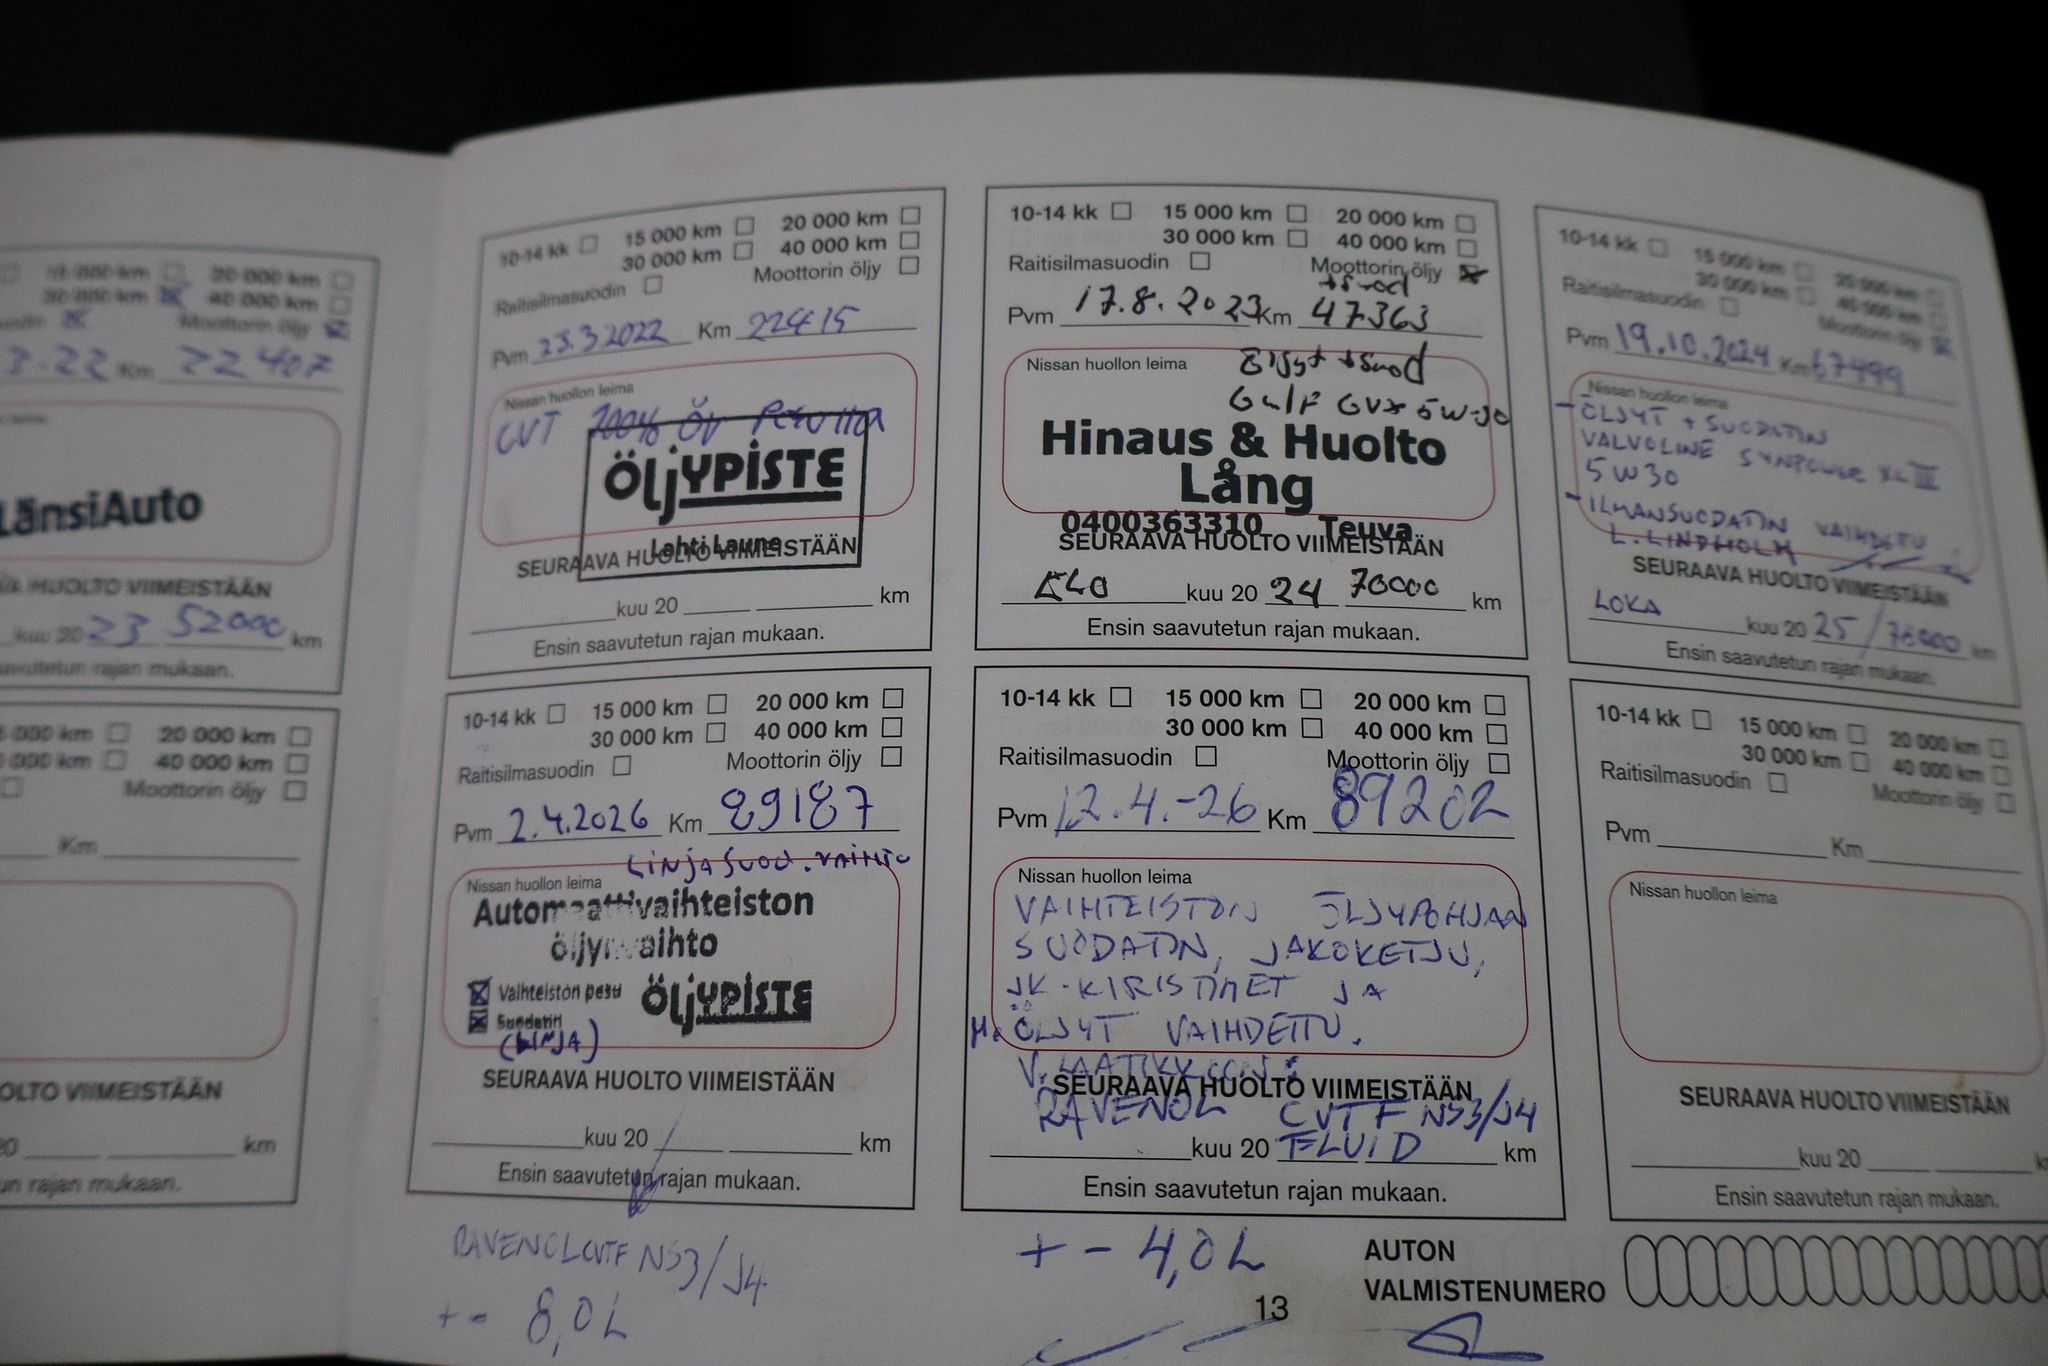 15 000 km 20 000 km
30 000 km 40 000 km
Moottorin öljy
3.22 Km 22 407
LänsiAuto
HUOLTO VIIMEISTÄÄN
kuu 20 23 52000 km
rajan mukaan.
20 000 km
40 000 km
Moottorin öljy
Km
VIIMEISTÄÄN
km
rajan mukaan.
10-14 kk 15 000 km 20 000 km
30 000 km 40 000 km
Raitisilmasuodin Moottorin öljy
Pvm 23.3 2022 Km 22415
Nissan huollon leima
CVT 100% ÖV
ÖljYPISTE
Lahti Laune
SEURAAVA HUOLTO VIIMEISTÄÄN
kuu 20 km
Ensin saavutetun rajan mukaan.
10-14 kk 15 000 km 20 000 km
30 000 km 40 000 km
Raitisilmasuodin Moottorin öljy
+suod
Pvm 17.8.2023 Km 47363
Nissan huollon leima
Öljyt +suod
Gulf GVX 5W-30
Hinaus & Huolto
Lång
0400363310 Teuva
SEURAAVA HUOLTO VIIMEISTÄÄN
ELO kuu 20 24 70000 km
Ensin saavutetun rajan mukaan.
10-14 kk 15 000 km 20 000 km
30 000 km 40 000 km
Raitisilmasuodin Moottorin öljy
Pvm 19.10.2024 Km 67499
Nissan huollon leima
- ÖLJYT + SUODATIN
VALVOLINE SYNPOWER XL III
5W30
- ILMANSUODATIN VAIHDETTU.
L. LINDHOLM
SEURAAVA HUOLTO VIIMEISTÄÄN
LOKA kuu 20 25 / km
Ensin saavutetun rajan mukaan.
10-14 kk 15 000 km 20 000 km
30 000 km 40 000 km
Raitisilmasuodin Moottorin öljy
Pvm 2.4.2026 Km 89187
LINJASUOD. VAIHTO
Nissan huollon leima
Automaattivaihteiston
öljynvaihto
Vaihteiston pesu
Suodatin
ÖljYPISTE
(LINJA)
SEURAAVA HUOLTO VIIMEISTÄÄN
kuu 20 km
Ensin saavutetun rajan mukaan.
RAVENOL CVTF NS3/J4
+- 8,0L
10-14 kk 15 000 km 20 000 km
30 000 km 40 000 km
Raitisilmasuodin Moottorin öljy
Pvm 12.4.-26 Km 89202
Nissan huollon leima
VAIHTEISTON ÖLJYPOHJAN
SUODATIN, JAKOKETJU,
JK-KIRISTIMET JA
M. ÖLJYT VAIHDETTU.
V. LAATIKKOON:
SEURAAVA HUOLTO VIIMEISTÄÄN
RAVENOL CVTF NS3/J4
kuu 20 FLUID km
Ensin saavutetun rajan mukaan.
+- 4,0L
10-14 kk 15 000 km 20 000 km
30 000 km 40 000 km
Raitisilmasuodin Moottorin öljy
Pvm Km
Nissan huollon leima
SEURAAVA HUOLTO VIIMEISTÄÄN
kuu 20
Ensin saavutetun rajan mukaan.
AUTON
VALMISTENUMERO
13